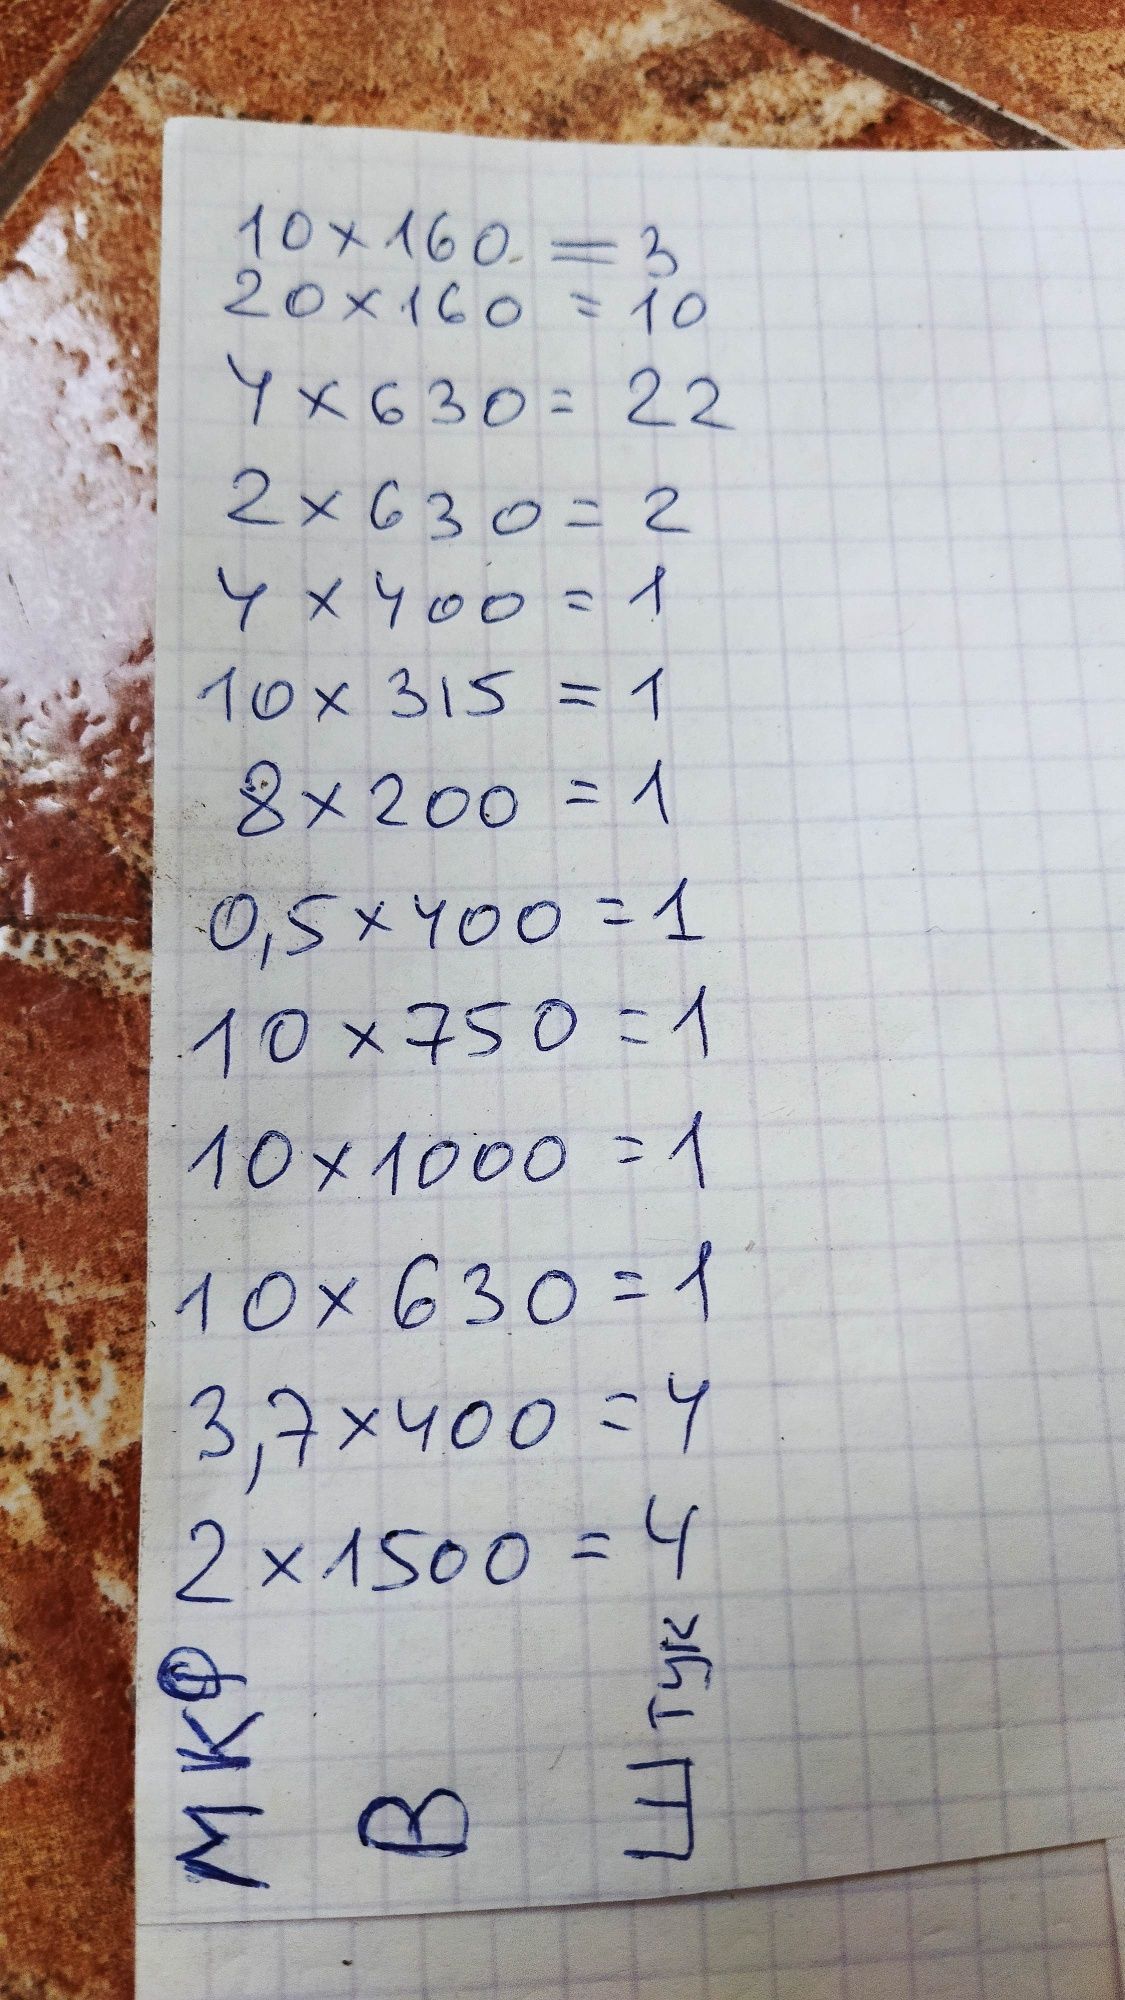 10×160=3
20×160=10
4×630=22
2×630=2
4×400=1
10×315=1
8×200=1
0,5×400=1
10×750=1
10×1000=1
10×630=1
3,7×400=4
2×1500=4
МКФ
В
Штук